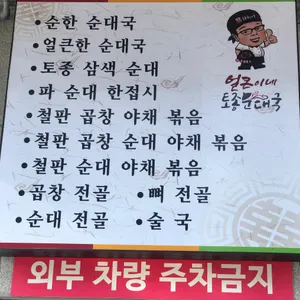 •순한 순대국
•얼큰한 순대국
•토종 삼색 순대
•파 순대 한접시
•철판 곱창 야채 볶음
•철판 곱창 순대 야채 볶음
•철판 순대 야채 볶음
•곱창 전골 •뼈 전골
•순대 전골 •술 국
얼큰이네
토종순대국
외부 차량 주차금지